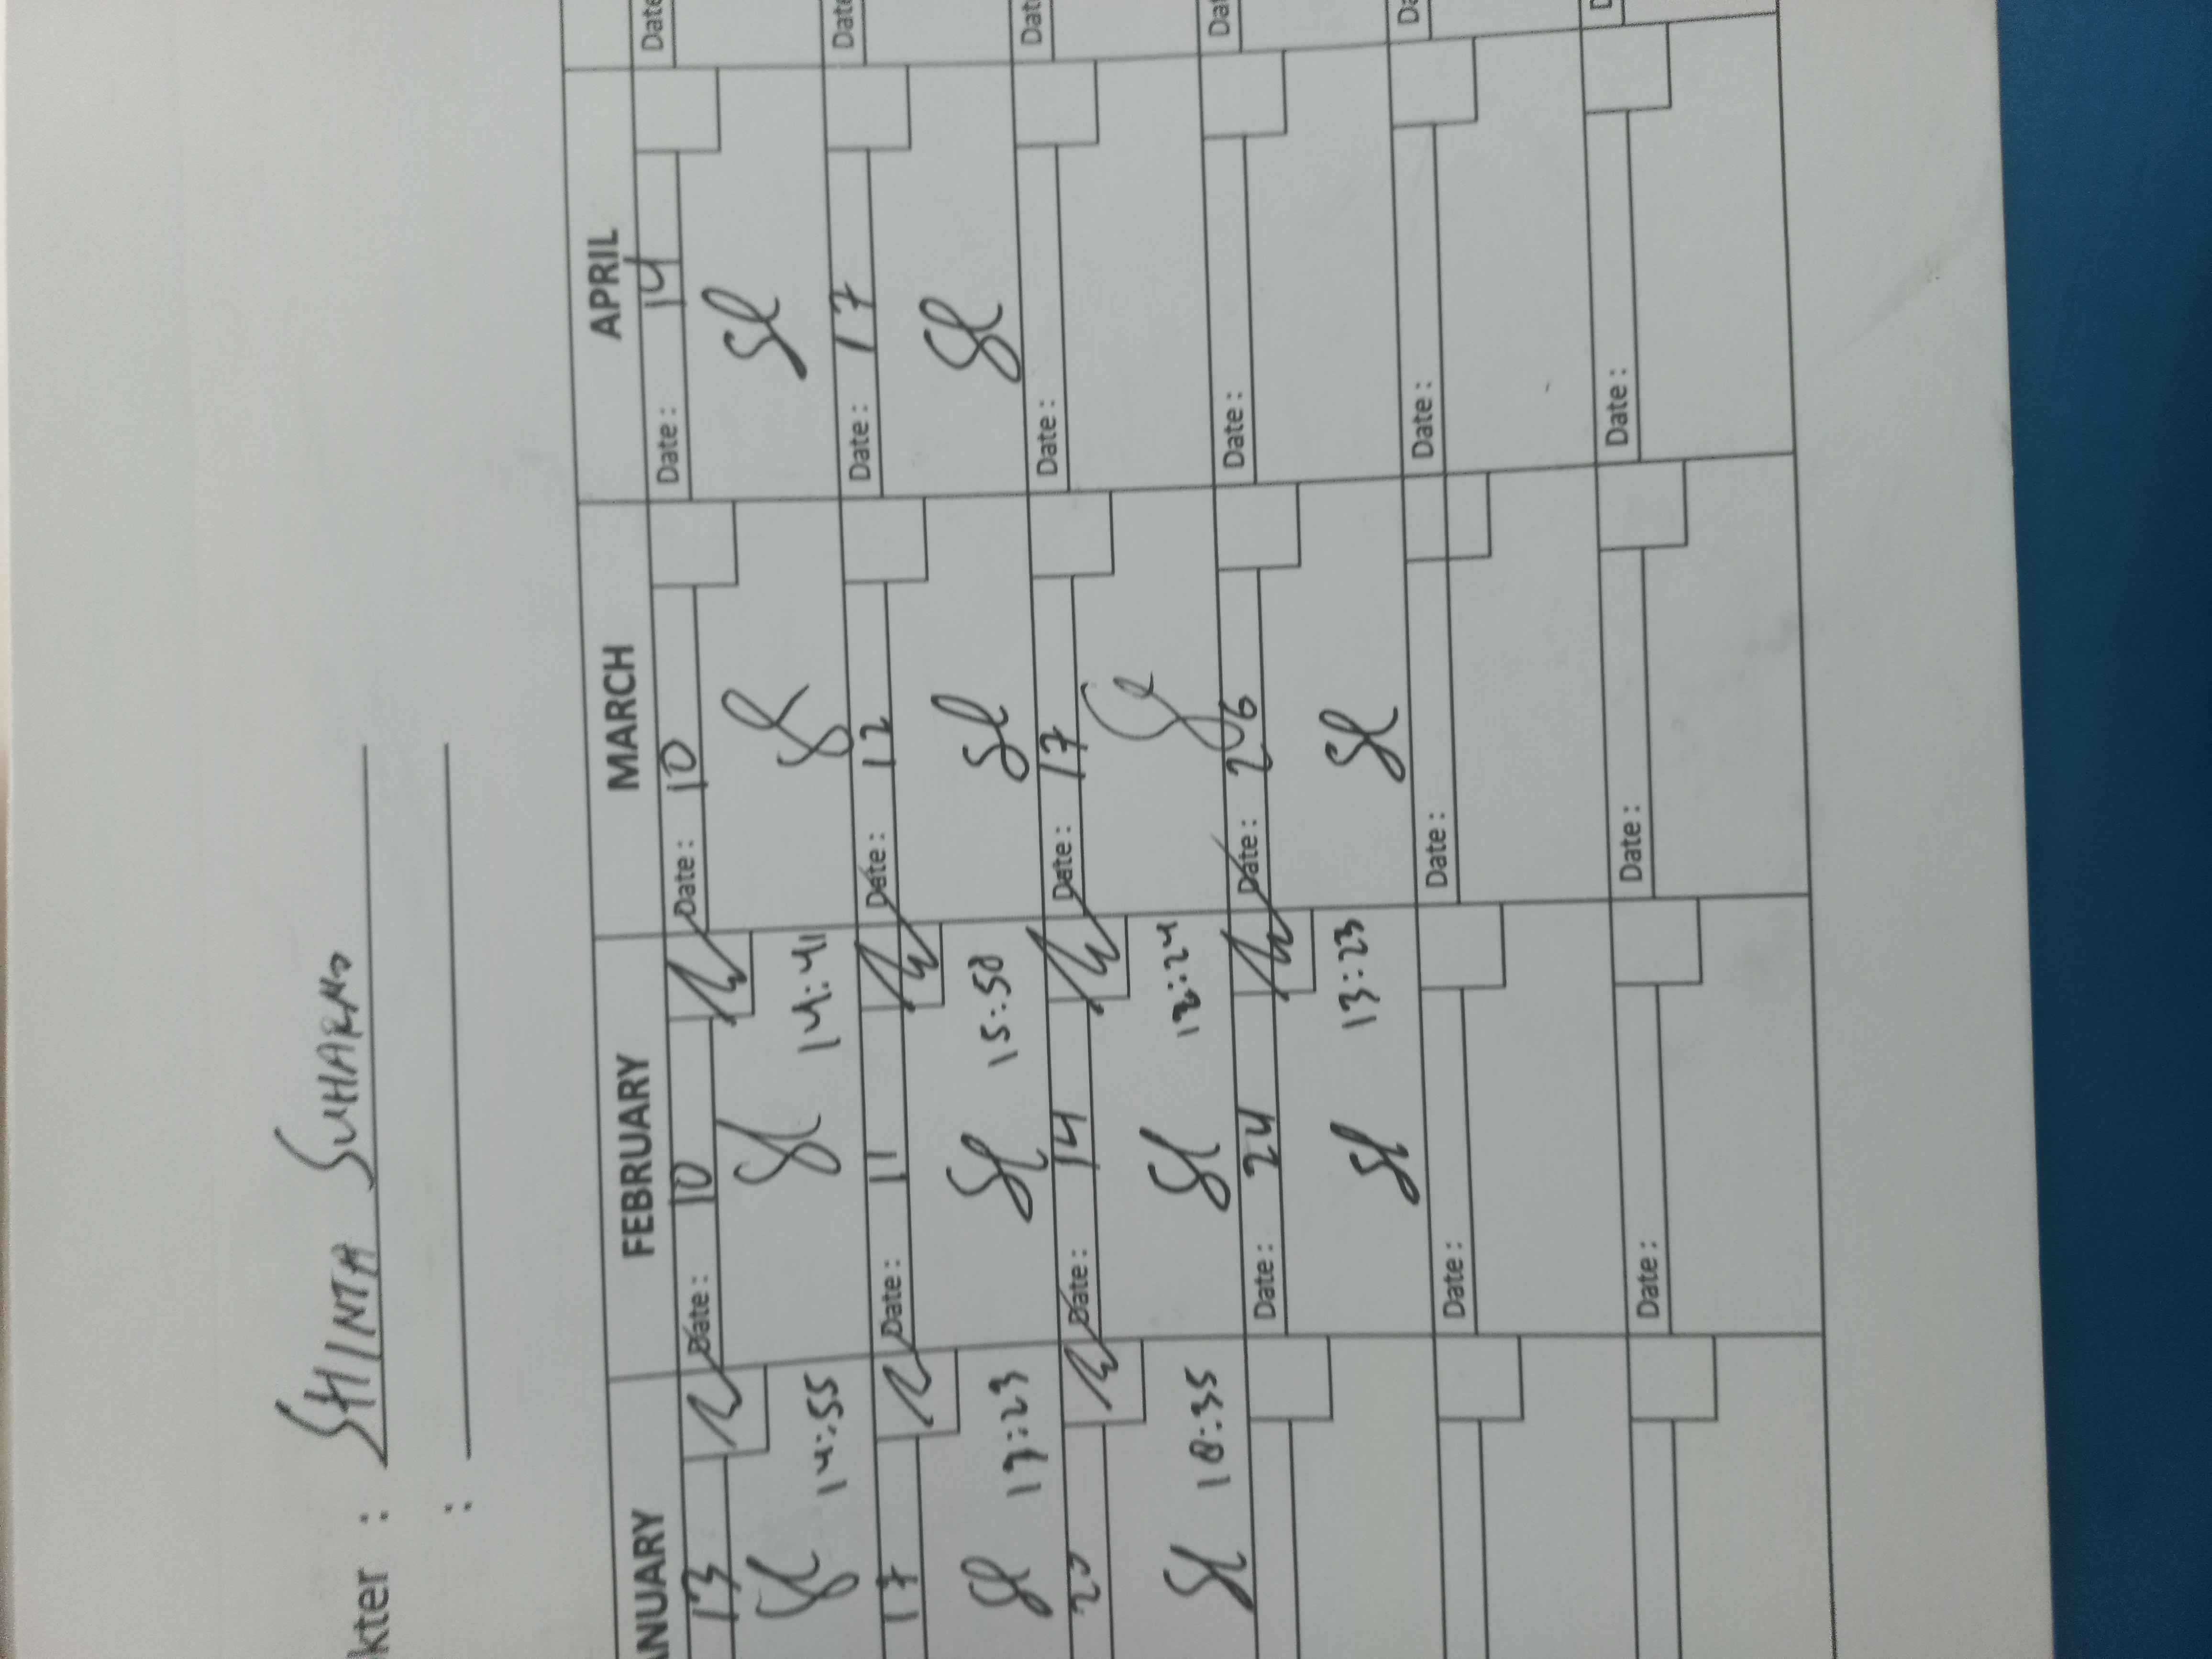 kter : SHINTA SUHARNO
:
ANUARY FEBRUARY MARCH APRIL
13 Date: 10 Date: 10 Date: 14 Date
14:55 14:41
17 Date: 11 Date: 12 Date: 17 Date
17:23 15:58
20 Date: 14 Date: 17 Date: Dat
18:35 :24
Date: 24 Date: 26 Date: Da
13:23
Date: Date: Date: Da
Date: Date: Date: D